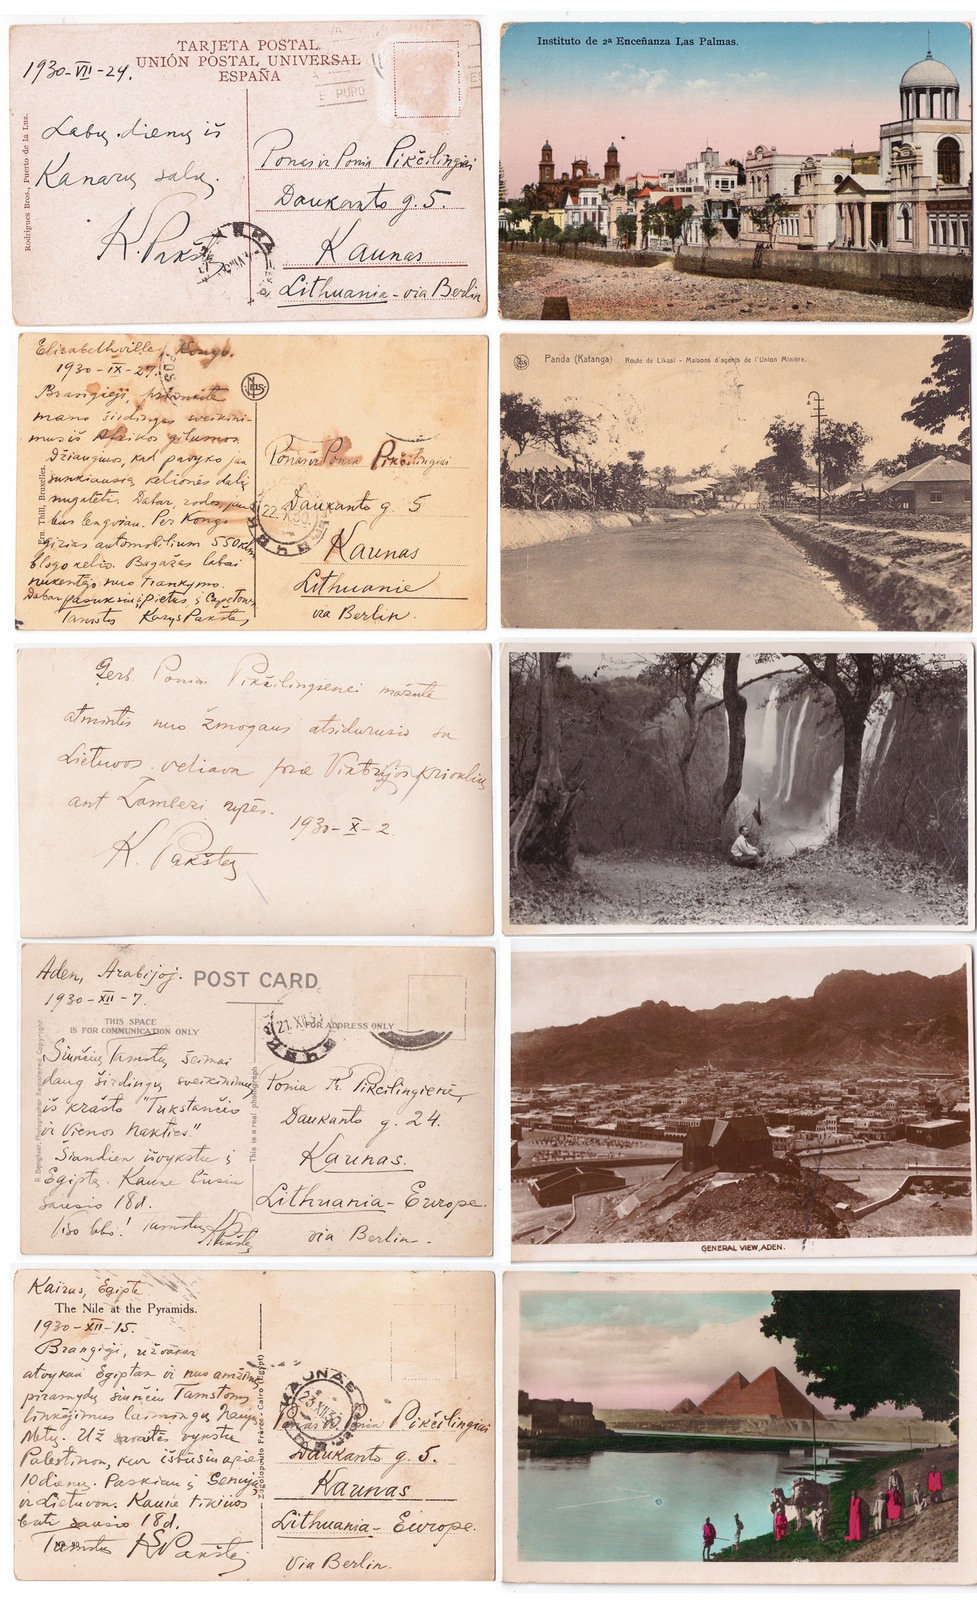 TARJETA POSTAL
UNIÓN POSTAL UNIVERSAL
ESPAÑA
1930-VII-24.
Rodrigues Bros., Puerto de la Luz.
PURO
Labų dienų iš
Kanarų salų.
K. Pakštas
Ponas ir Ponia Pikčilingiai
Daukanto g. 5.
Kaunas
Lithuania - via Berlin
Instituto de 2ª Enceñanza Las Palmas.
Elisabethville, Kongo.
1930-IX-27.
Brangieji, priimkite
mano širdingus sveikini-
mus iš Afrikos gilumos.
Džiaugiuos, kad pavyko jau
sunkiausią kelionės dalį
nugalėti. Dabar, rodos, jau
bus lengviau. Per Kongo
girias automobiliu 550 klm
blogo kelio. Bagažas labai
nukentėjo nuo trankymo.
Dabar pasuksiu į Pietus į Capetown
Tamstos Kazys Pakštas
Ern. Thill, Bruxelles.
Ponas ir Ponia Pikčilingiai
Daukanto g. 5
22.X.30
Kaunas
Lithuanie
via Berlin.
Panda (Katanga) Route de Likasi - Maisons d'agents de l'Union Minière.
Gerb. Poniai Pikčilingienei mažutė
atmintis nuo žmogaus atsidurusio su
Lietuvos vėliava prie Viktorijos krioklių
ant Zambezi upės.
1930-X-2.
K. Pakštas
Aden, Arabijoj.
1930-XII-7.
POST CARD
THIS SPACE
IS FOR COMMUNICATION ONLY
FOR ADDRESS ONLY
21.XII.30
Siunčiu Tamstų šeimai
daug širdingų sveikinimų
iš krašto "Tukstančio
ir vienos nakties."
Šiandien išvykstu į
Egiptą. Kaune būsiu
sausio 18d.
Viso labo! Tamstų K. Pakštas
This is a real photograph
Ponia Pikčilingienė,
Daukanto g. 24.
Kaunas.
Lithuania - Europe.
via Berlin.
GENERAL VIEW, ADEN.
Kairas, Egipte
The Nile at the Pyramids.
1930-XII-15.
Brangieji, užvakar
atvykau Egiptan ir nuo amžinų
piramydų siunčiu Tamstoms
linkėjimus laimingų Naujų
Metų. Už savaitės vykstu
Palestinon, kur išbusiu apie
10 dienų. Paskiau į Genują
ir Lietuvon. Kaune tikiuos
būti sausio 18d.
Tamstų K. Pakštas
Zagolopoulo Frères - Cairo (Egypt)
KAUNAS
23.XII.30
Ponas ir Ponia Pikčilingiai
Daukanto g. 5.
Kaunas
Lithuania - Europe.
via Berlin.